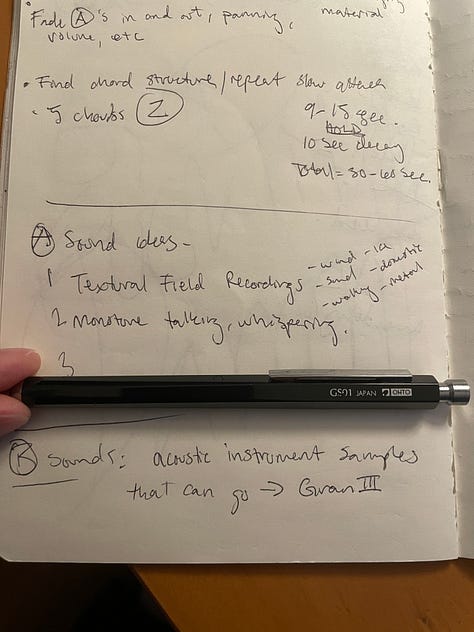 Fade Ⓐ's in and out, panning, material
volume, etc
• Find chord structure/repeat slow attack
• 5 chords Ⓩ
9-15 sec.
HOLD
10 sec decay
Total = 30-60 sec.
Ⓐ Sound ideas -
1 Textural Field Recordings - wind - ice
- sand - domestic
- walking - metal
2 Monotone talking, whispering.
3
GS01 JAPAN OHTO
Ⓑ Sounds: acoustic instrument samples
that can go → Gran III